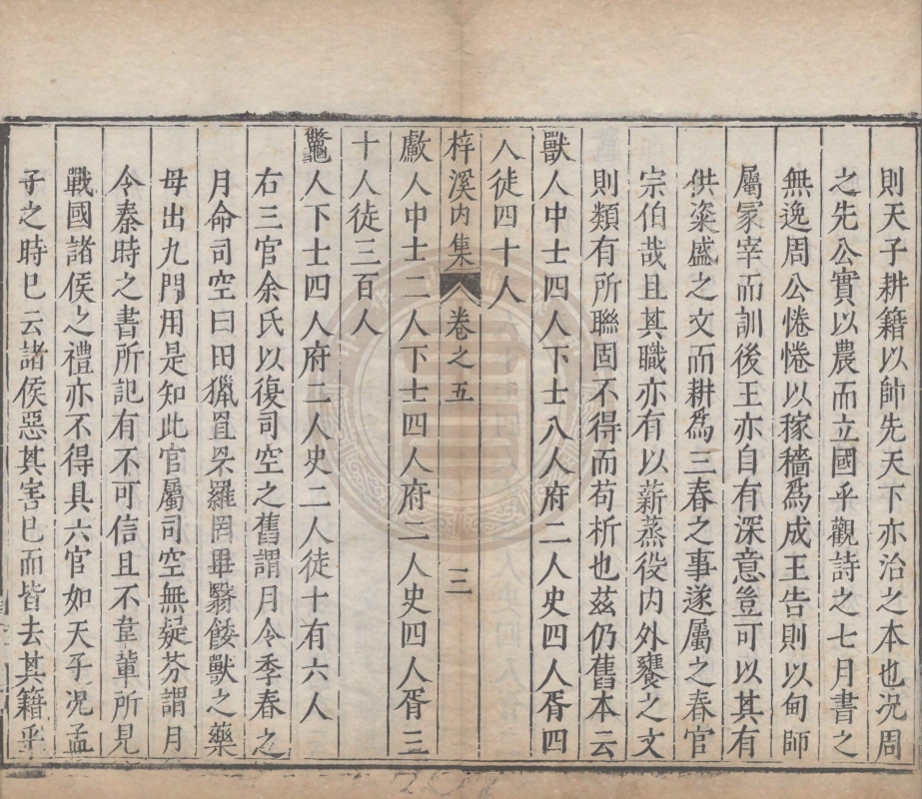 則天子耕籍以師先天下亦治之本也況周
之先公實以農而立國乎觀詩之七月書之
無逸周公惓惓以稼穡爲成王告則以甸師
屬冡宰而訓後王亦自有深意豈可以其有
供粢盛之文而耕爲三春之事遂屬之春官
宗伯哉且其職亦有以薪蒸役内外饔之文
則類有所聯固不得而苟析也茲仍舊本云
獸人中士四人下士八人府二人史四人胥四
人徒四十人
梓溪内集 卷之五 三
䱷人中士二人下士四人府二人史四人胥三
十人徒三百人
鼈人下士四人府二人史二人徒十有六人
右三官余氏以復司空之舊謂月令季春之
月命司空曰田獵罝罘羅罔畢翳餧獸之藥
毋出九門用是知此官屬司空無疑芬謂月
令秦時之書所記有不可信且不韋輩所見
戰國諸侯之禮亦不得具六官如天子況孟
子之時已云諸侯惡其害已而皆去其籍乎